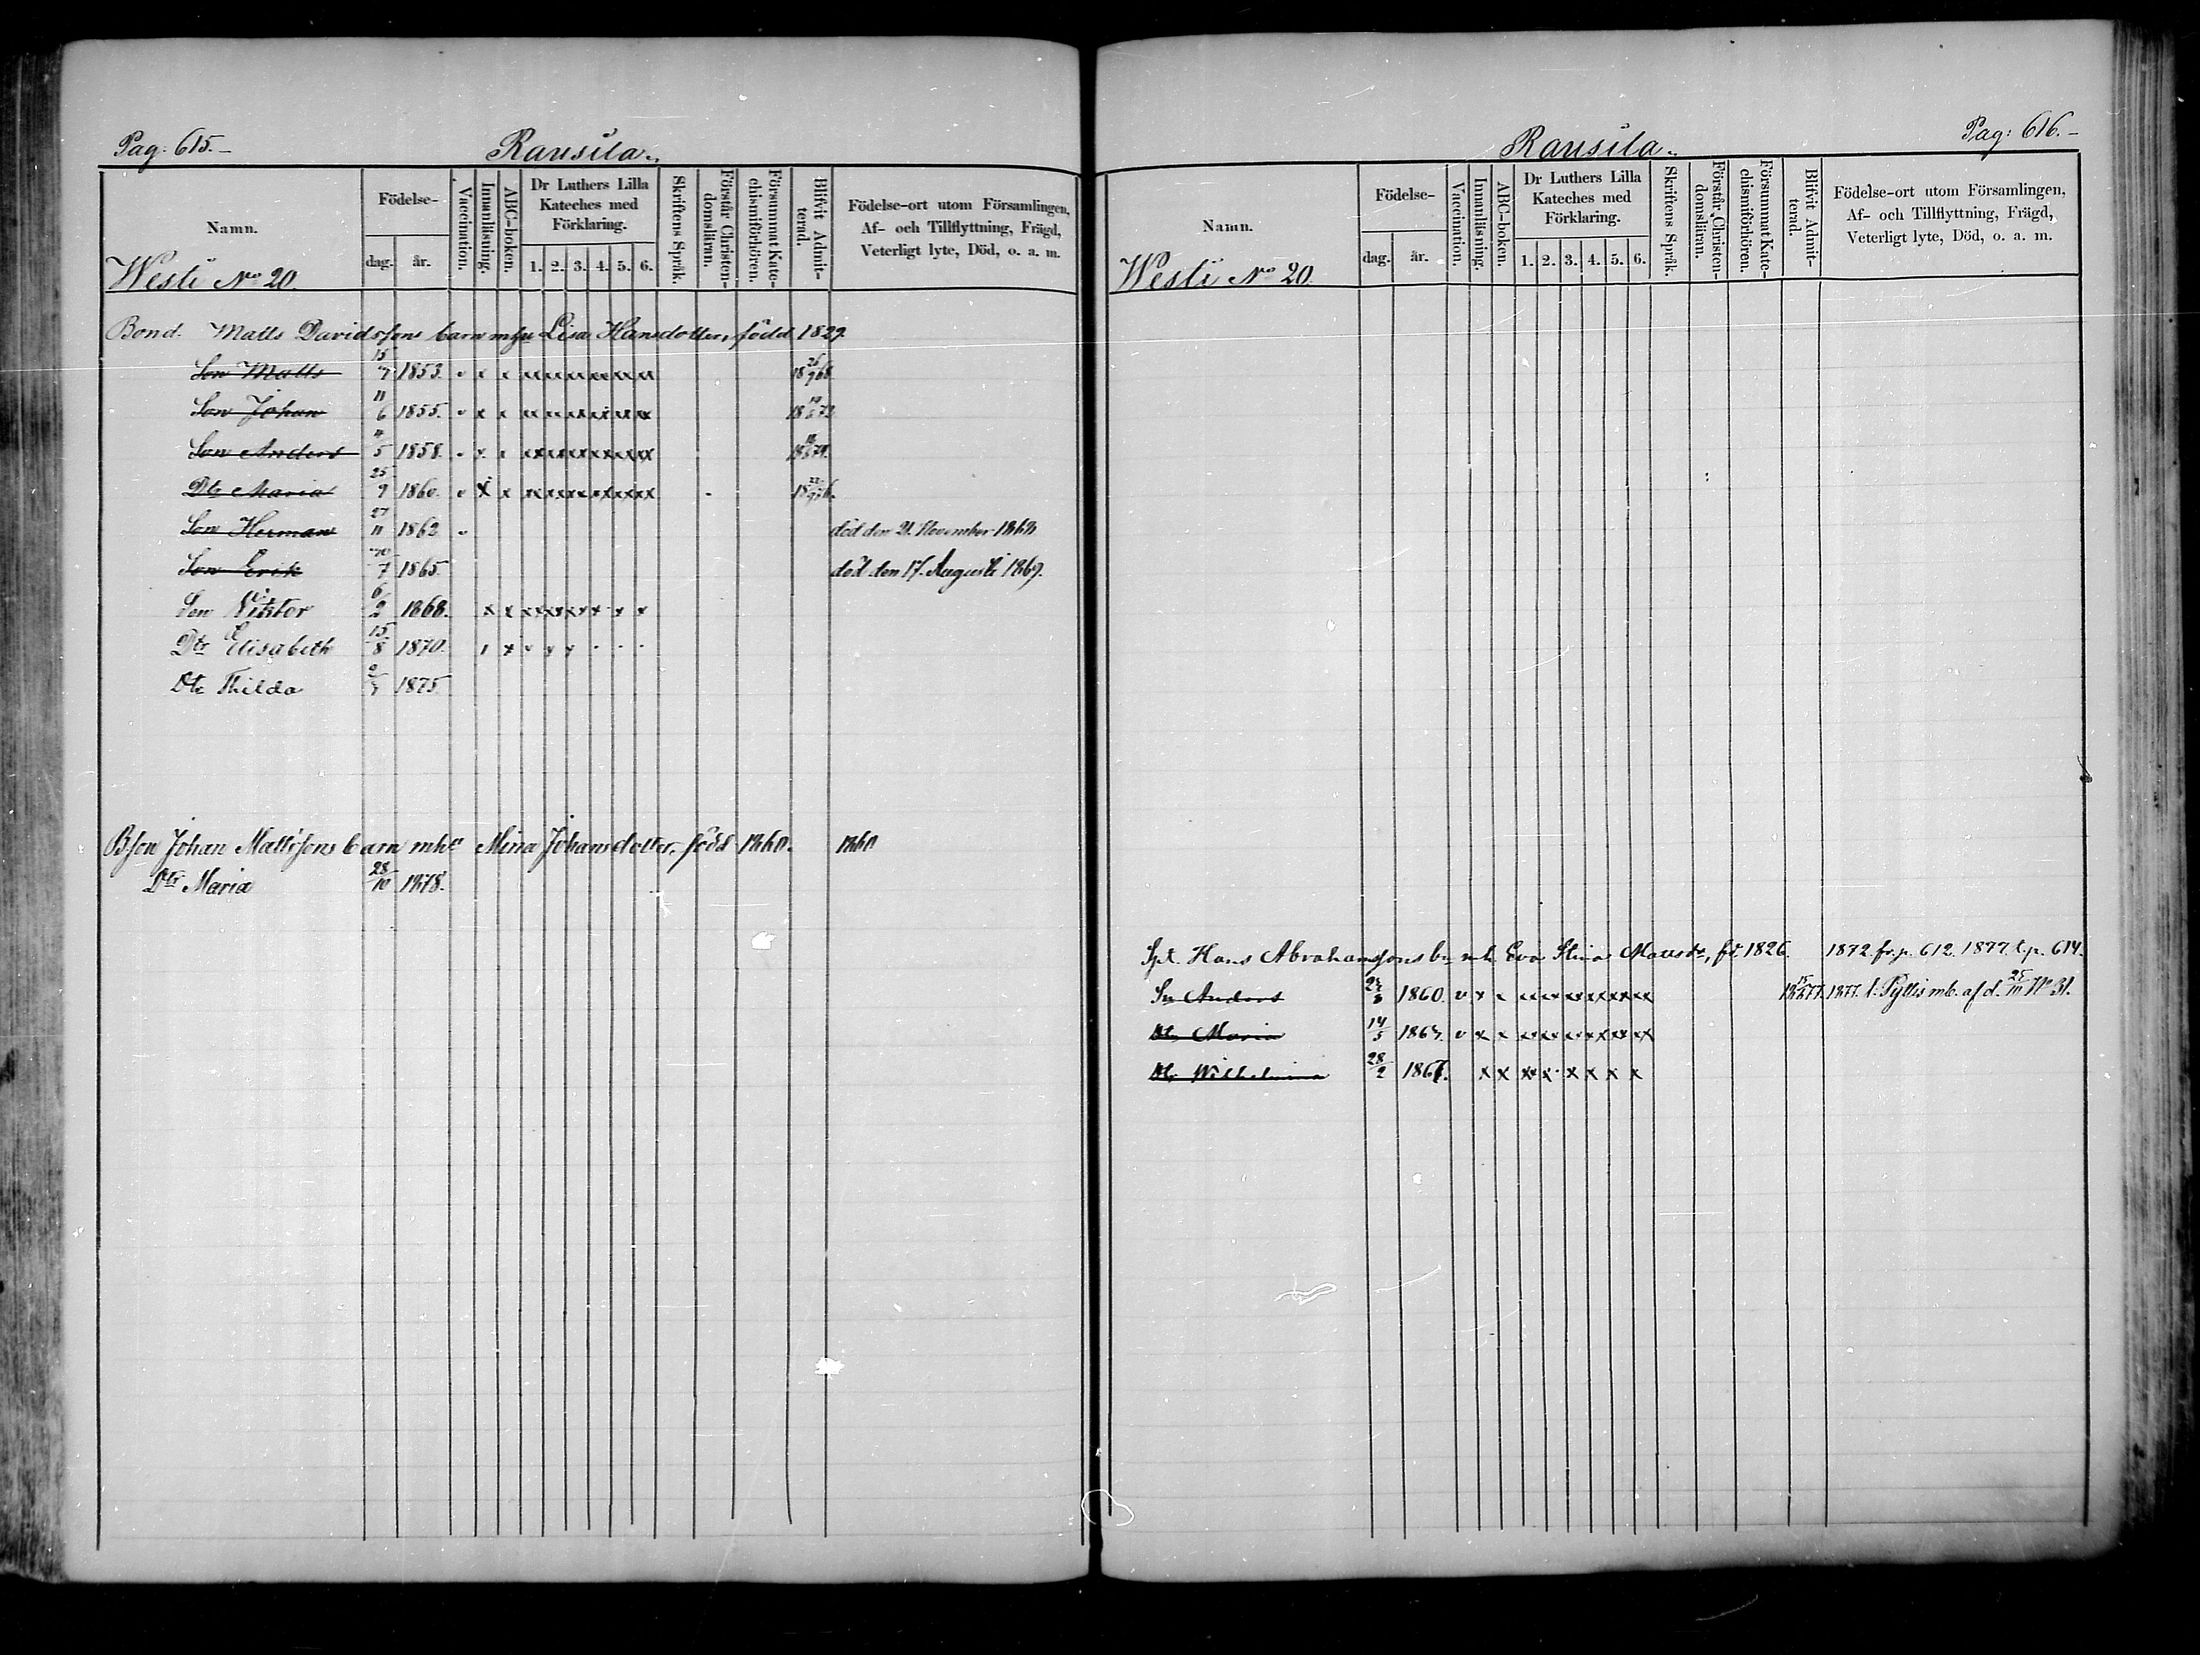 Pag: 615.–
Ransila.
Namn.
Födelse-
dag. år.
Vaccination.
Innanläsning.
ABC-boken.
Dr Luthers Lilla Kateches med Förklaring.
1. 2. 3. 4. 5. 6.
Skriftens Språk.
Förstår Christendomsläran.
Försummat Katechismiförhören.
Blifvit Admitterad.
Födelse-ort utom Församlingen,
Af- och Tillflyttning, Frägd,
Veterligt lyte, Död, o. a. m.
Westi No 20.
Bond. Matts Davidssons barn mhu Lisa Hansdotter, född 1829.
Son Matts 15/7 1853. v x x
Son Johan 11/6 1855. v x x
Son Anders 4/5 1858. v x x
Dtr Maria 25/9 1860. v x x
Son Herman 27/11 1862 v död den 21. November 1868
Son Erik 7 1865 död den 17. Augusti 1869.
Son Viktor 6/2 1868. x x
Dtr Elisabeth 15/8 1870.
Dtr Hilda 1875
Bson Johan Mattssons barn mhu Mina Johansdotter, född 1860. 1860
Dtr Maria 28/10 1878.
Pag: 616.–
Ransila.
Namn.
Födelse-
dag. år.
Vaccination.
Innanläsning.
ABC-boken.
Dr Luthers Lilla Kateches med Förklaring.
1. 2. 3. 4. 5. 6.
Skriftens Språk.
Förstår Christendomsläran.
Försummat Katechismiförhören.
Blifvit Admitterad.
Födelse-ort utom Församlingen,
Af- och Tillflyttning, Frägd,
Veterligt lyte, Död, o. a. m.
Westi No 20.
Spt. Hans Abrahamssons bn mh. Eva Stina Mattsdr, fd. 1826. 1872 fr. p. 612. 1877 t. p. 614.
Sn Anders 1860. v x 1877. t. Pyttis mb. af d. 25/ No 31.
Dtr Maria 14/5 1864. v x x
Dtr Wilhelmina 28/2 1867. x x x x x x x x